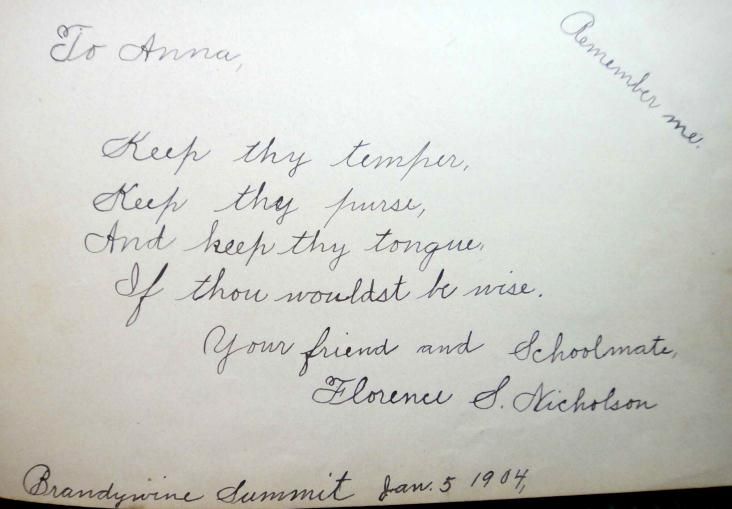 To Anna,
Remember me.
Keep thy temper,
Keep thy purse,
And keep thy tongue,
If thou wouldst be wise.
Your friend and Schoolmate,
Florence S. Nicholson
Brandywine Summit Jan. 5 1904,